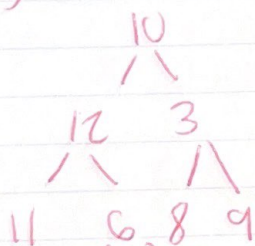 10
12 3
11 6 8 9